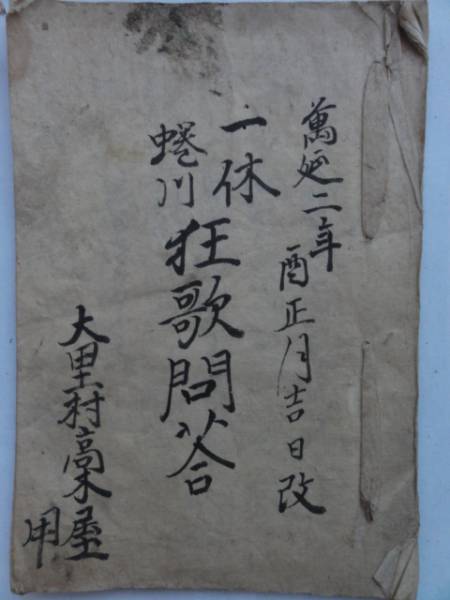 萬延二年酉正月吉日改
一休
蜷川
狂歌問答
大里村高木屋
用